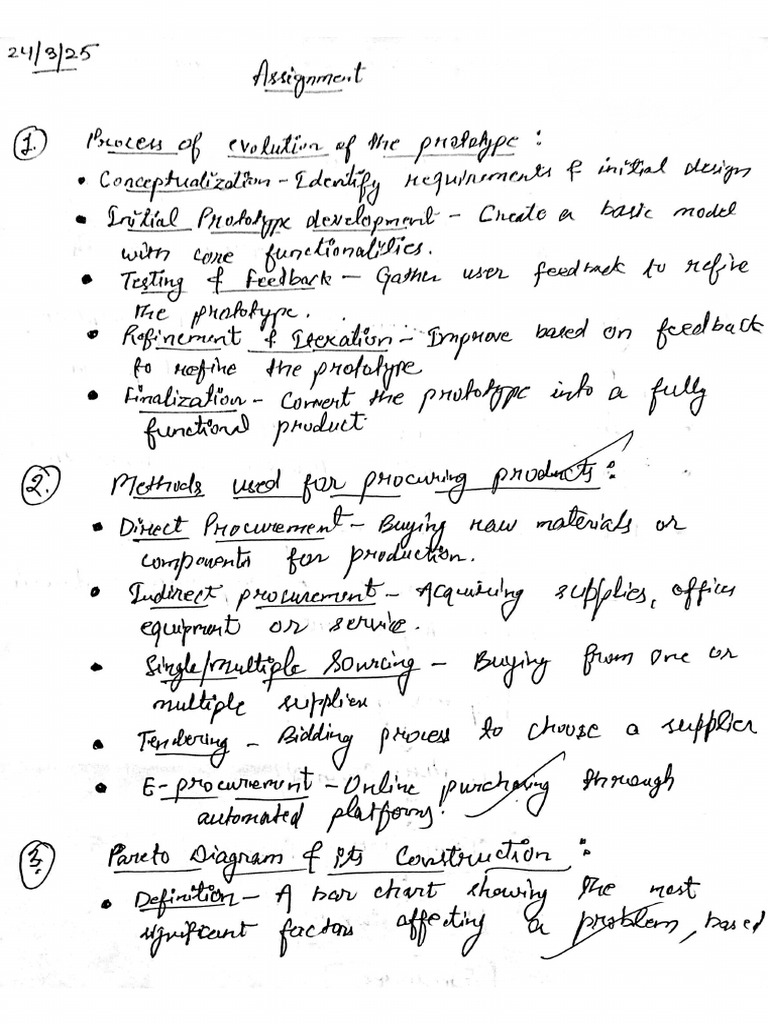 24/3/25
Assignment
1. Process of evolution of the prototype :
• Conceptualization - Identify requirements & initial design
• Initial Prototype development - Create a basic model
with core functionalities.
• Testing & Feedback - Gather user feedback to refine
the prototype.
• Refinement & Iteration - Improve based on feedback
to refine the prototype
• Finalization - Convert the prototype into a fully
functional product
2. Methods used for procuring products :
• Direct Procurement - Buying raw materials or
components for production.
• Indirect procurement - Acquiring supplies, office
equipment or service.
• Single/multiple Sourcing - Buying from one or
multiple supplier
• Tendering - Bidding process to choose a supplier
• E-procurement - Online purchasing through
automated platforms.
3. Pareto Diagram & its Construction :
• Definition - A bar chart showing the most
significant factors affecting a problem, based